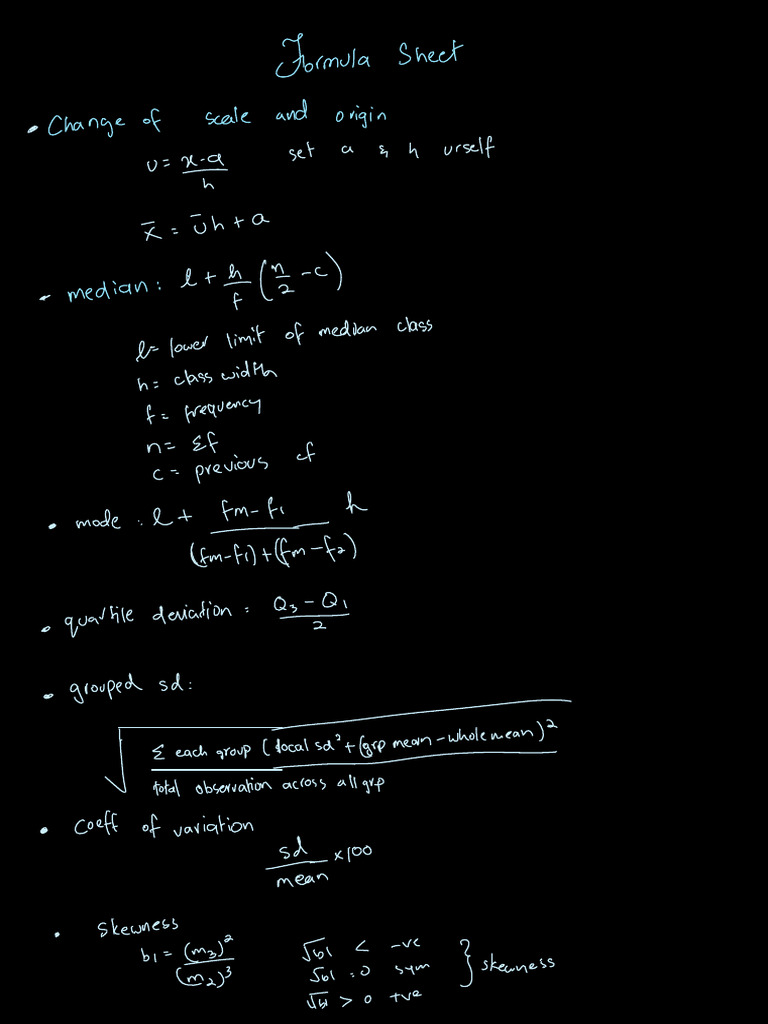 Formula Sheet
• Change of scale and origin
u = (x-a)/h set a & h urself
x̄ = ūh + a
• median: l + h/f (n/2 - c)
l = lower limit of median class
h = class width
f = frequency
n = Σf
c = previous cf
• mode: l + (fm-f1)/((fm-f1)+(fm-f2)) h
• quartile deviation = (Q3 - Q1)/2
• grouped sd:
√(Σ each group (local sd² + (grp mean - whole mean)² / total observation across all grp)
• Coeff of variation
sd/mean × 100
• Skewness
b1 = (m3)²/(m2)³
√b1 < -ve
√b1 = 0 sym } skewness
√b1 > 0 +ve